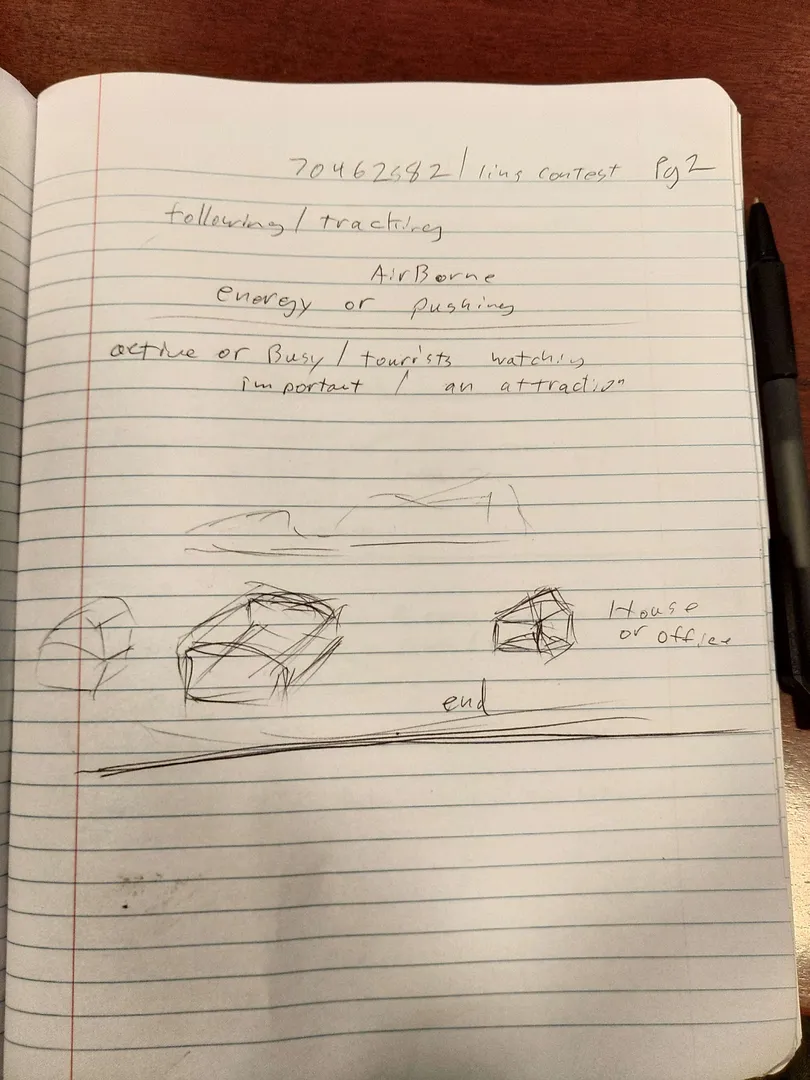 70462582 / lins contest Pg 2
following / tracking
AirBorne
energy or pushing
active or Busy / tourists watching
important / an attraction
House
or office
end